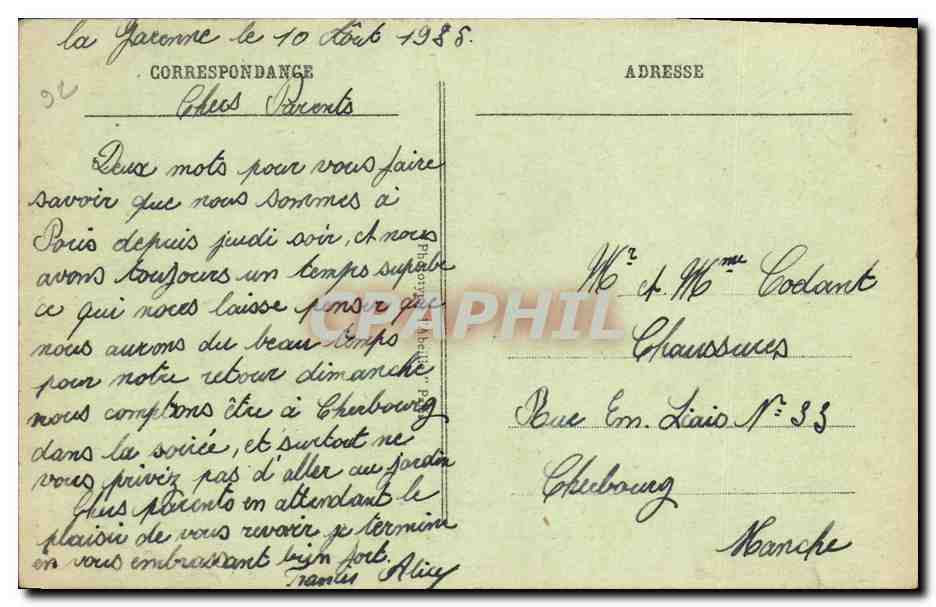 la Garenne le 10 Août 1938.
CORRESPONDANCE
92
Chers Parents
Deux mots pour vous faire
savoir que nous sommes à
Paris depuis jeudi soir, et nous
avons toujours un temps superbe
ce qui nous laisse penser que
nous aurons du beau temps
pour notre retour dimanche
nous comptons être à Cherbourg
dans la soirée, et surtout ne
vous privez pas d'aller au jardin
Chers parents en attendant le
plaisir de vous revoir je termine
en vous embrassant bien fort.
Alice
Phototypie "l'Abeille"
CPAPHIL
ADRESSE
Mr et Mme Codant
Chaussures
Rue Em. Liais No 33
Cherbourg
Manche